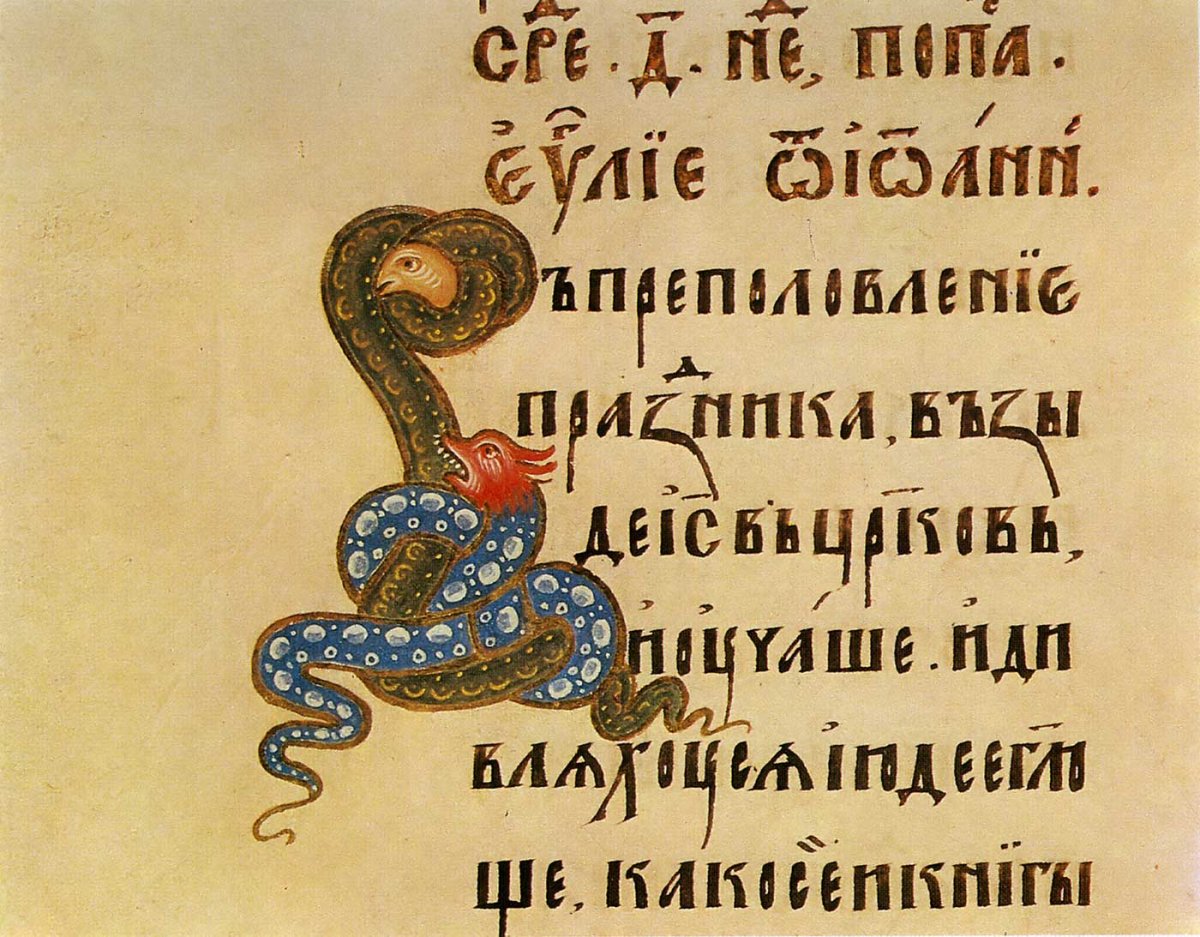 сре҇ . д҃ . н҃е, попа҇ .
є҆ѵ҃лїе ѿ і҆ѡ҃а́нн꙽.
ъ преполовленїе
праꙁⷣника, въꙁы
де і҆с҃ въ цр҃ковь,
и҆ ѹ҆ча́ше . и҆ ди
влѧхѹсѧ і҆юдее гл҃ю
ще, како се҇ и книгы